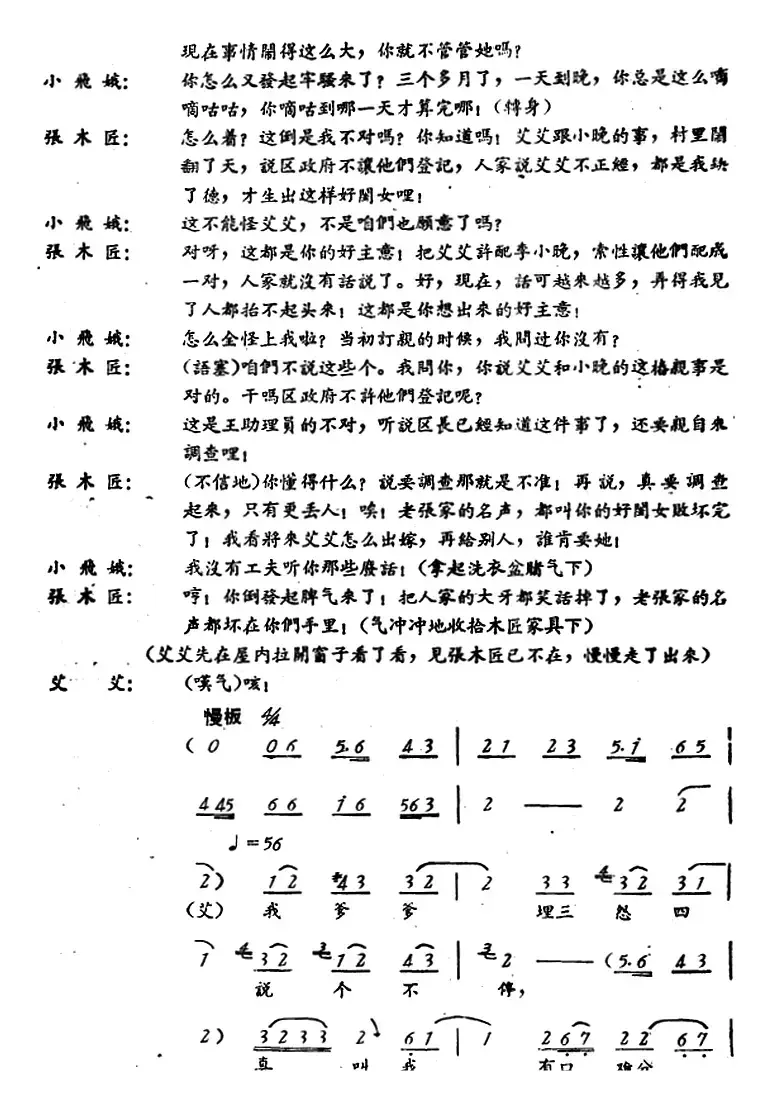 現在事情鬧得这么大，你就不管管她嗎？
小飛娥： 你怎么又發起牢騷來了？三个多月了，一天到晚，你总是这么嘀
嘀咕咕，你嘀咕到哪一天才算完哪！（轉身）
張木匠： 怎么着？这倒是我不对嗎？你知道嗎！艾艾跟小晚的事，村里鬧
翻了天，說区政府不讓他們登記，人家說艾艾不正經，都是我缺
了德，才生出这样好閨女哩！
小飛娥： 这不能怪艾艾，不是咱們也願意了嗎？
張木匠： 对呀，这都是你的好主意！把艾艾許配李小晚，索性讓他們配成
一对，人家就沒有話說了。好，現在，話可越來越多，弄得我見
了人都抬不起头來！这都是你想出來的好主意！
小飛娥： 怎么全怪上我啦？当初訂親的时候，我問过你沒有？
張木匠： （語塞）咱們不說这些个。我問你，你說艾艾和小晚的这樁親事是
对的。干嗎区政府不許他們登記呢？
小飛娥： 这是王助理員的不对，听說区長已經知道这件事了，还要親自來
調查哩！
張木匠： （不信地）你懂得什么？說要調查那就是不准！再說，真要調查
起來，只有更丢人！唉！老張家的名声，都叫你的好閨女敗坏完
了！我看將來艾艾怎么出嫁，再給別人，誰肯要她！
小飛娥： 我沒有工夫听你那些廢話！（拿起洗衣盆賭气下）
張木匠： 哼！你倒發起脾气来了！把人家的大牙都笑話掉了，老張家的名
声都坏在你們手里！（气冲冲地收拾木匠家具下）
（艾艾先在屋内拉開窗子看了看，見張木匠已不在，慢慢走了出來）
艾 艾： （嘆气）咳！
慢板 4/4
（0 06 5.6 43 | 21 23 5.i 65 |
445 66 i6 563 | 2 — 2 2 |
♩=56
2） 12 #43 32 | 2 33 32 31 |
（艾） 我 爹 爹 埋三 怨 四
1 32 12 43 | 2 — （5.6 43
說 个 不 停，
2） 3233 2 61 | 1 267 22 67 |
真 叫 我 有口 难分